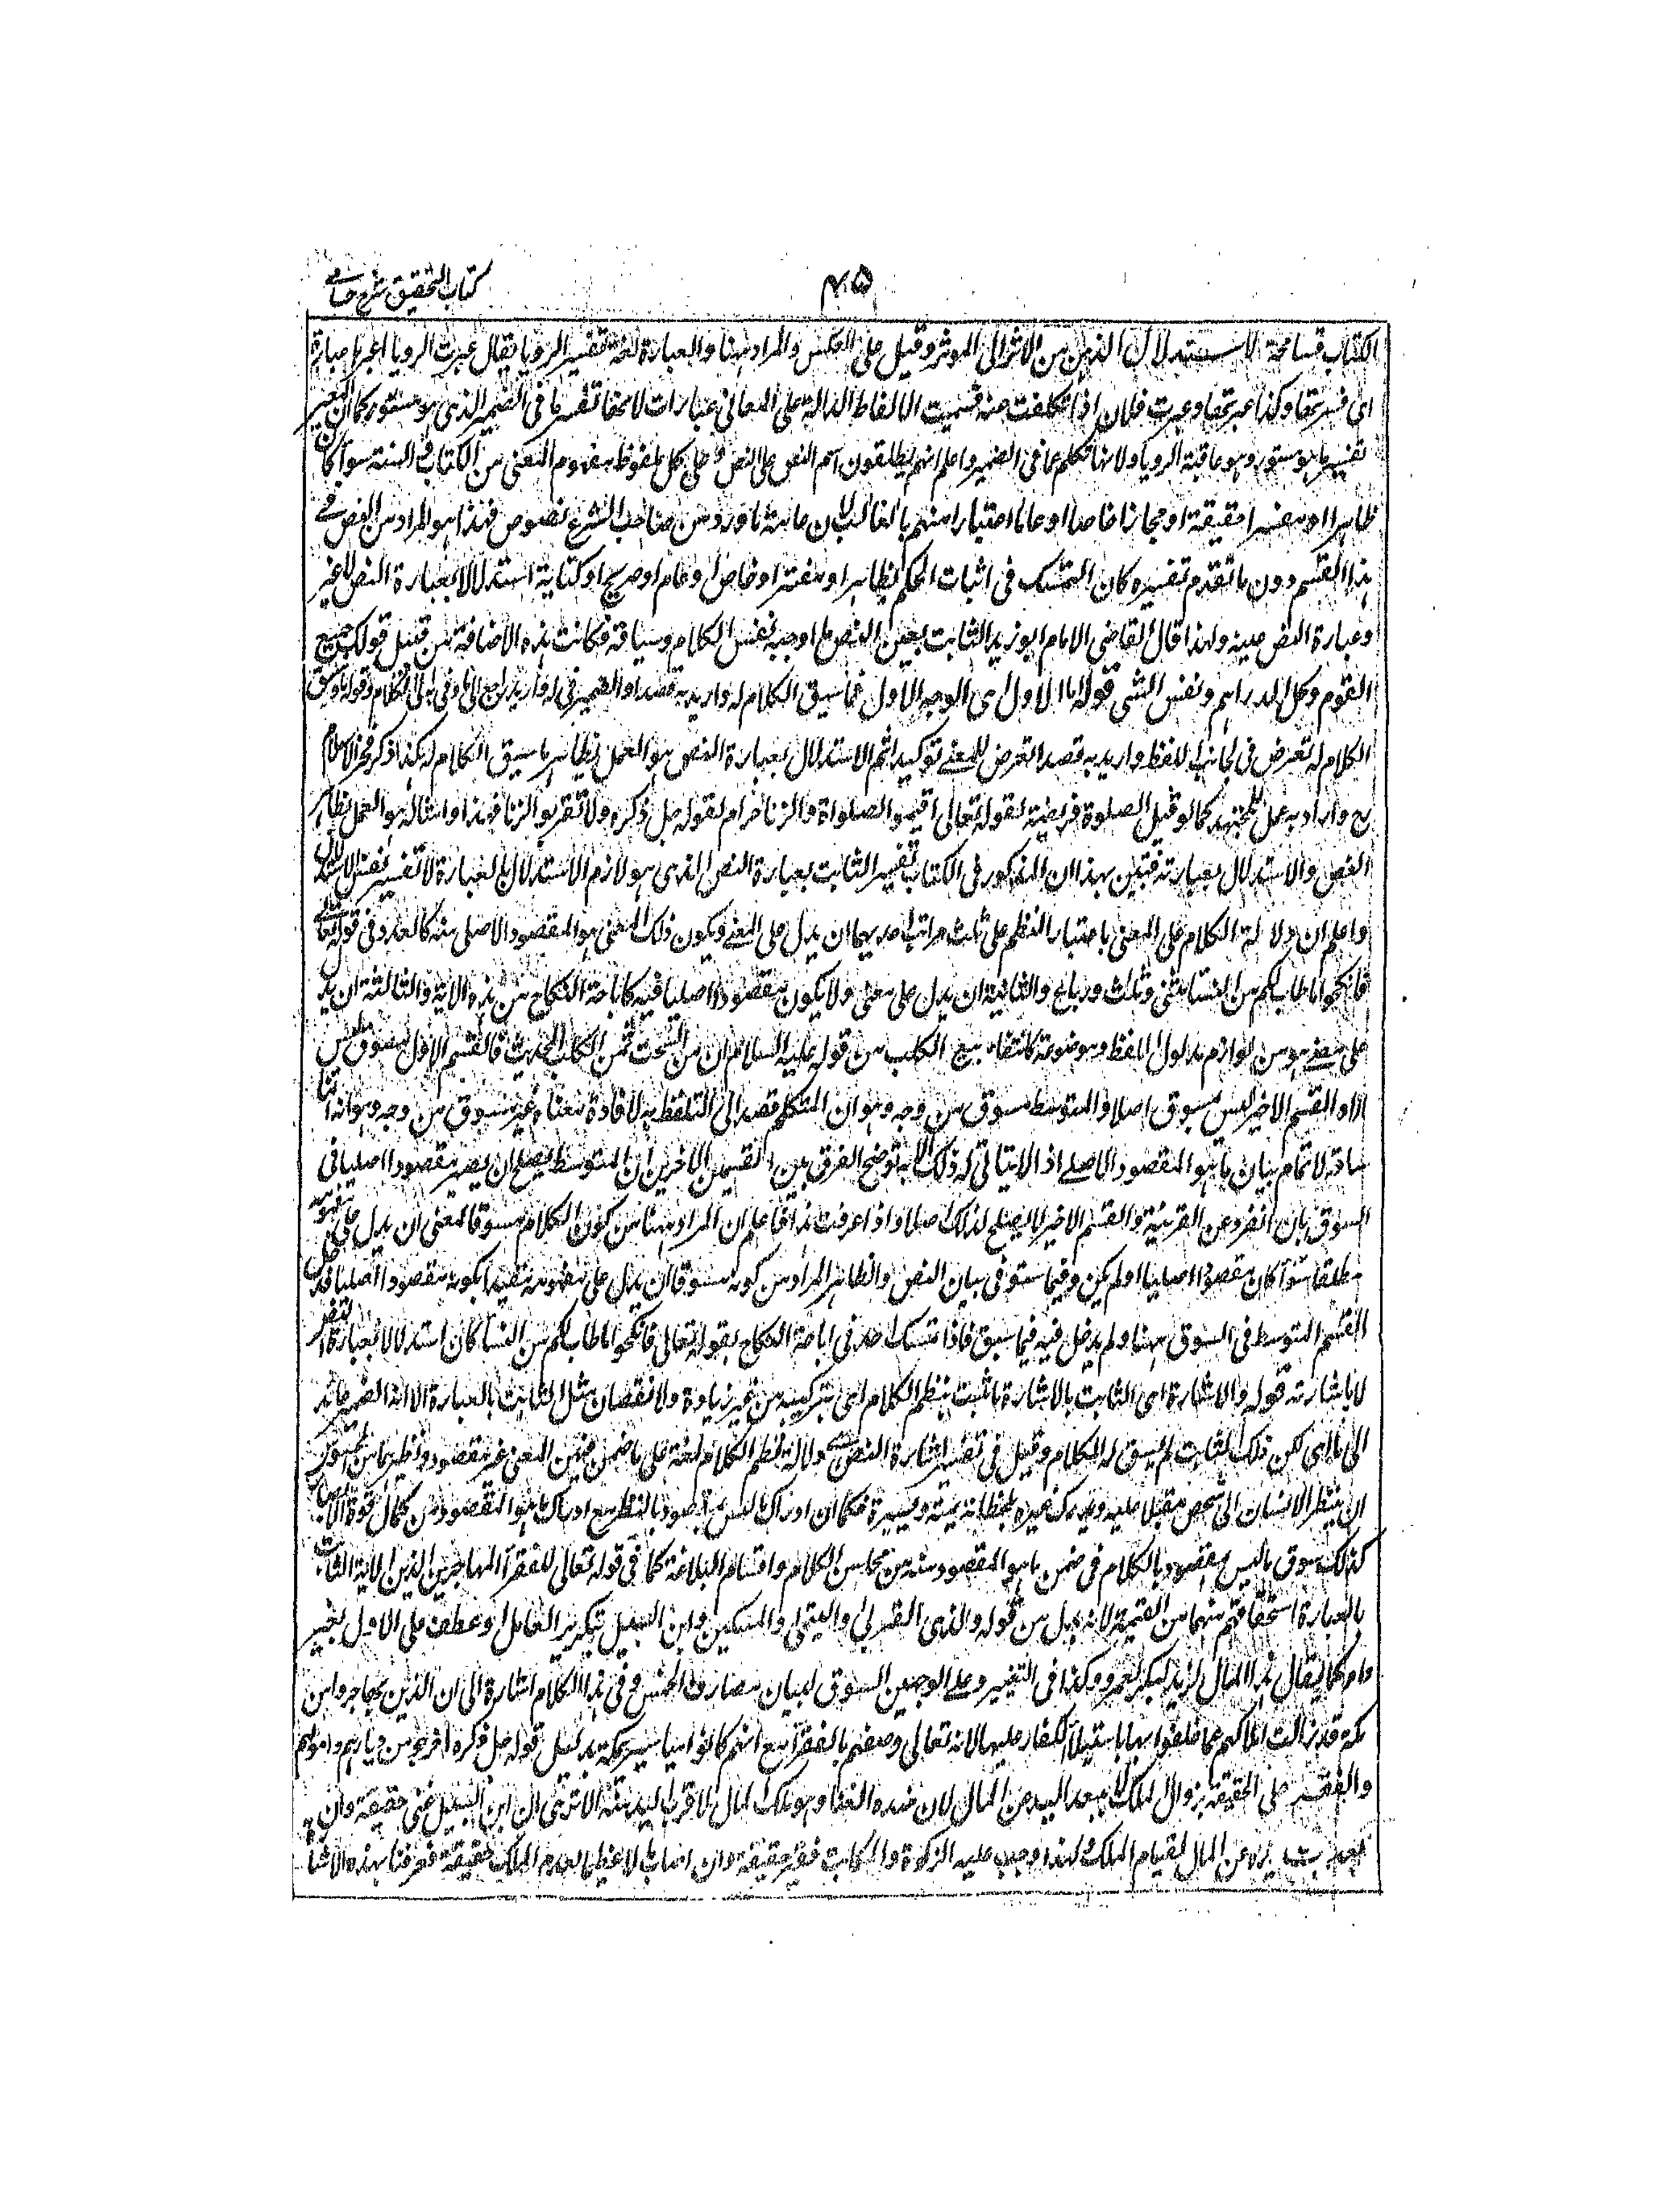 كتاب التحقيق شرح حسامى
الكتاب مسامحة الاستدلال الذهن من الاثر الى الموثر وقيل على العكس والمراد ههنا والعبارة لغة تفسير الرويا يقال عبرت الرويا اعبرها عبارة
اى فسرتها وكذا عبرتها وعبرت فلان اذا تكلمت عنه فسميت الالفاظ الدالة على المعانى عبارات لانها تفسر ما فى الضمير الذى هو مستور كما ان المعبر
تفسير ما هو مستور وهو عاقبة الرويا ولانها تكلم عما فى الضمير واعلم انهم يطلقون اسم النص على النص وعلى كل ملفوظ مفهوم المعنى من الكتاب والسنة سوآ كان
ظاهرا او مفسرا حقيقة او مجازا خاصا او عاما اعتبارا منهم بالغالب لان عامة ما ورد من صاحب الشرع نصوص فهذا هو المراد من النص فى
هذا القسم دون ما تقدم تفسيره كان التمسك فى اثبات الحكم بظاهر او مفسر او خاص او عام او صريح او كناية استدلالا بعبارة النص لا غير
وعبارة النص عينه ولهذا قال القاضى الامام ابو زيد الثابت بعين النص ما اوجبه نفس الكلام وسياقه فكانت هذه الاضافة من قبيل قولك جميع
القوم وكل الدراهم ونفس الشى قوله اما الاول اى الوجه الاول فما سيق الكلام له واريد به قصدا والضمير فى له واريد راجع الى ما وفى به الى الكلام وقوله ما سيق
الكلام له تعرض فى جانب للفظ واريد به قصدا تعرض للمعنى توكيدا ثم الاستدلال بعبارة النص هو العمل بظاهر ما سيق الكلام له كذا ذكر فخر الاسلام
رح واراد به عمل المجتهد كما لو قيل الصلوة فريضة لقوله تعالى اقيموا الصلواة والزنا حرام لقوله جل ذكره ولا تقربوا الزنا فهذا وامثاله هو العمل بظاهر
النص والاستدلال بعبارته فتبين بهذا ان المذكور فى الكتاب تفسير الثابت بعبارة النص الذى هو لازم الاستدلال بالعبارة لا تفسير نفس الاستدلال
واعلم ان دلالة الكلام على المعنى باعتبار النظم على ثلث مراتب احديهما ان يدل على المعنى ويكون ذلك المعنى هو المقصود الاصلى منه كالعدد فى قوله تعالى
فانكحوا ما طاب لكم من النسا مثنى وثلث ورباع والثانية ان يدل على معنى ولا يكون مقصودا اصليا فيه كاباحة النكاح من هذه الاية والثالثة ان يدل
على معنى هو من لوازم مدلول اللفظ وموضوعه كانعقاد بيع الكلب من قوله عليه السلام ان من السحت ثمن الكلب الحديث فالقسم الاول مسوق ليس
الا والقسم الاخير ليس بمسوق اصلا والمتوسط مسوق من وجه وهو ان المتكلم قصد الى التلفظ به لافادة معناه غير مسوق من وجه وهو انه انما
ساقه لاتمام بيان ما هو المقصود الاصلى اذ لا يتاتى له ذلك الا به توضح الفرق بين القسمين الاخرين ان المتوسط يصلح ان يصير مقصودا اصليا فى
السوق بان انفرد عن القرينة والقسم الاخير لا يصلح لذلك اصلا واذا عرفت هذا فاعلم ان المراد ههنا من كون الكلام مسوقا لمعنى ان يدل على مفهومه
مطلقا سوآ كان مقصودا اصليا او لم يكن وفيما سبق فى بيان النص والظاهر المراد من كونه مسوقا ان يدل على مفهومه مقيدا بكونه مقصودا اصليا فدخل
القسم المتوسط فى السوق ههنا ولم يدخل فيه فيما سبق فاذا تمسك احد فى اباحة النكاح بقوله تعالى فانكحوا ما طاب لكم من النسآ كان استدلالا بعبارة النص
لا باشارته قوله والاشارة اى الثابت بالاشارة ما ثبت بنظم الكلام اى بتركيبه من غير زيادة ولا نقصان مثل الثابت بالعبارة الا انه الضمير عائد
الى ما اى لكن ذلك الثابت لم يسق له الكلام وقيل فى تفسير اشارة النص هى دلالة نظم الكلام لغة على ما ضمن ضمن المعنى غير مقصود ونظيرها من
ان ينظر الانسان الى شخص مقبل عليه ويدرك غيره بلحظاته يمنة ويسرة فكما ان ادراك ما ليس بمقصود بالنظر مع ادراك ما هو المقصود من كمال قوة الابصار
كذلك سوق ما ليس بمقصود بالكلام فى ضمن ما هو المقصود منه من محاسن الكلام واقسام البلاغة كما فى قوله تعالى للفقرآ المهاجرين الذين الاية الثابت
بالعبارة استحقاقهم سهما من الغنيمة لانه بدل من قوله ولذى القربى واليتمى والمسكين وابن السبيل بتكرير العامل وعطف على الاول بغير
واو كما يقال هذا المال لزيد لبكر لعمرو وكذا فى التفسير وعلى الوجهين السوق لبيان مصارف الخمس وفى هذا الكلام اشارة الى ان الذين هاجروا من
مكة قد زالت املاكهم عما خلفوا بها باستيلآ الكفار عليها لانه تعالى وصفهم بالفقرآ مع انهم كانوا مياسير بمكة بدليل قوله جل ذكره اخرجوا من ديارهم واموالهم
والفقر على الحقيقة بزوال الملك لا ببعد اليد من المال لان ضده الغنا وهو ملك المال لا قرب اليد منه الا ترى ان ابن السبيل غنى حقيقة وان
بعدت يده عن المال لقيام الملك ولهذا وجب عليه الزكوة والمكاتب فقير حقيقة وان اصاب مالا عظيما لعدم الملك حقيقة فعرفنا بهذه الاشارة